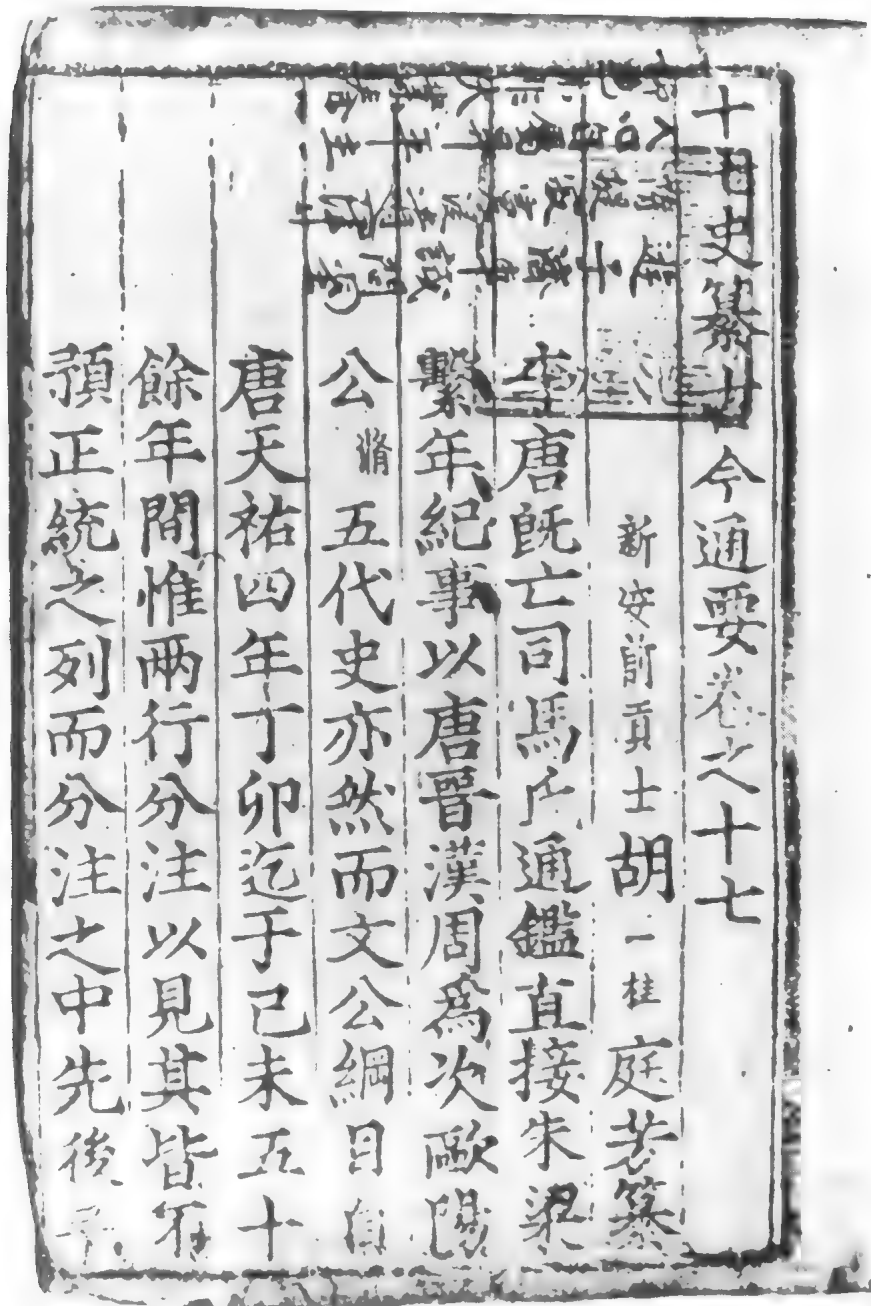 十七史纂古今通要卷之十七
新安前貢士胡一桂庭芳纂
李唐旣亡司馬氏通鑑直接朱梁
繫年紀事以唐晉漢周爲次歐陽
公脩五代史亦然而文公綱目自
唐天祐四年丁卯迄于己未五十
餘年間惟兩行分注以見其皆不
預正統之列而分注之中先後